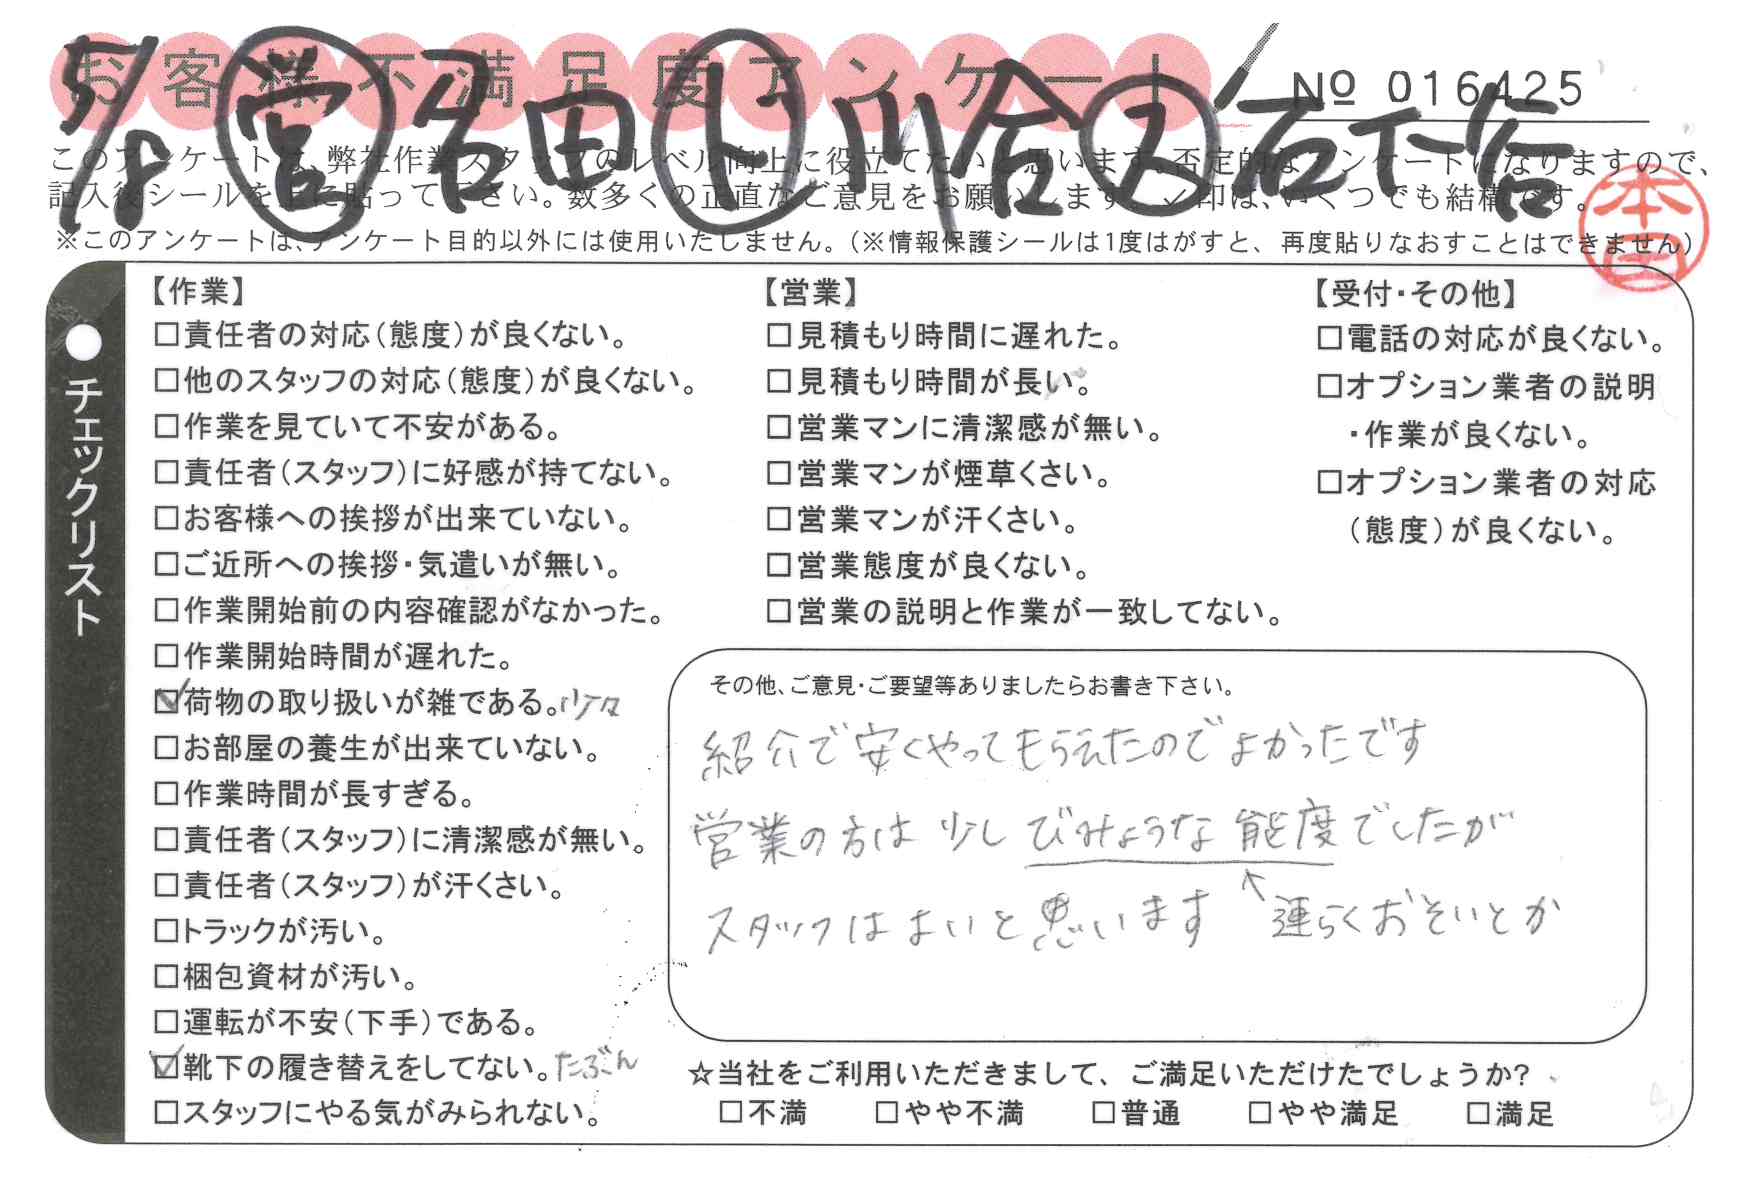 お客様不満足度アンケート
№ 016425
5/8 営 田 ト 川合 ス 石下
このアンケートは、弊社作業スタッフのレベル向上に役立てたいと思います。否定的なアンケートになりますので、
記入後シールを上に貼って下さい。数多くの正直なご意見をお願いします。✓印は、いくつでも結構です。
※このアンケートは、アンケート目的以外には使用いたしません。(※情報保護シールは1度はがすと、再度貼りなおすことはできません)
チェックリスト
【作業】
□責任者の対応(態度)が良くない。
□他のスタッフの対応(態度)が良くない。
□作業を見ていて不安がある。
□責任者(スタッフ)に好感が持てない。
□お客様への挨拶が出来ていない。
□ご近所への挨拶・気遣いが無い。
□作業開始前の内容確認がなかった。
□作業開始時間が遅れた。
☑荷物の取り扱いが雑である。少々
□お部屋の養生が出来ていない。
□作業時間が長すぎる。
□責任者(スタッフ)に清潔感が無い。
□責任者(スタッフ)が汗くさい。
□トラックが汚い。
□梱包資材が汚い。
□運転が不安(下手)である。
☑靴下の履き替えをしてない。たぶん
□スタッフにやる気がみられない。
【営業】
□見積もり時間に遅れた。
□見積もり時間が長い。
□営業マンに清潔感が無い。
□営業マンが煙草くさい。
□営業マンが汗くさい。
□営業態度が良くない。
□営業の説明と作業が一致してない。
【受付・その他】
□電話の対応が良くない。
□オプション業者の説明
・作業が良くない。
□オプション業者の対応
(態度)が良くない。
その他、ご意見・ご要望等ありましたらお書き下さい。
紹介で安くやってもらえたのでよかったです
営業の方は少しびみょうな態度でしたが
スタッフはよいと思います ↑連らくおそいとか
☆当社をご利用いただきまして、ご満足いただけたでしょうか?
□不満 □やや不満 □普通 □やや満足 □満足